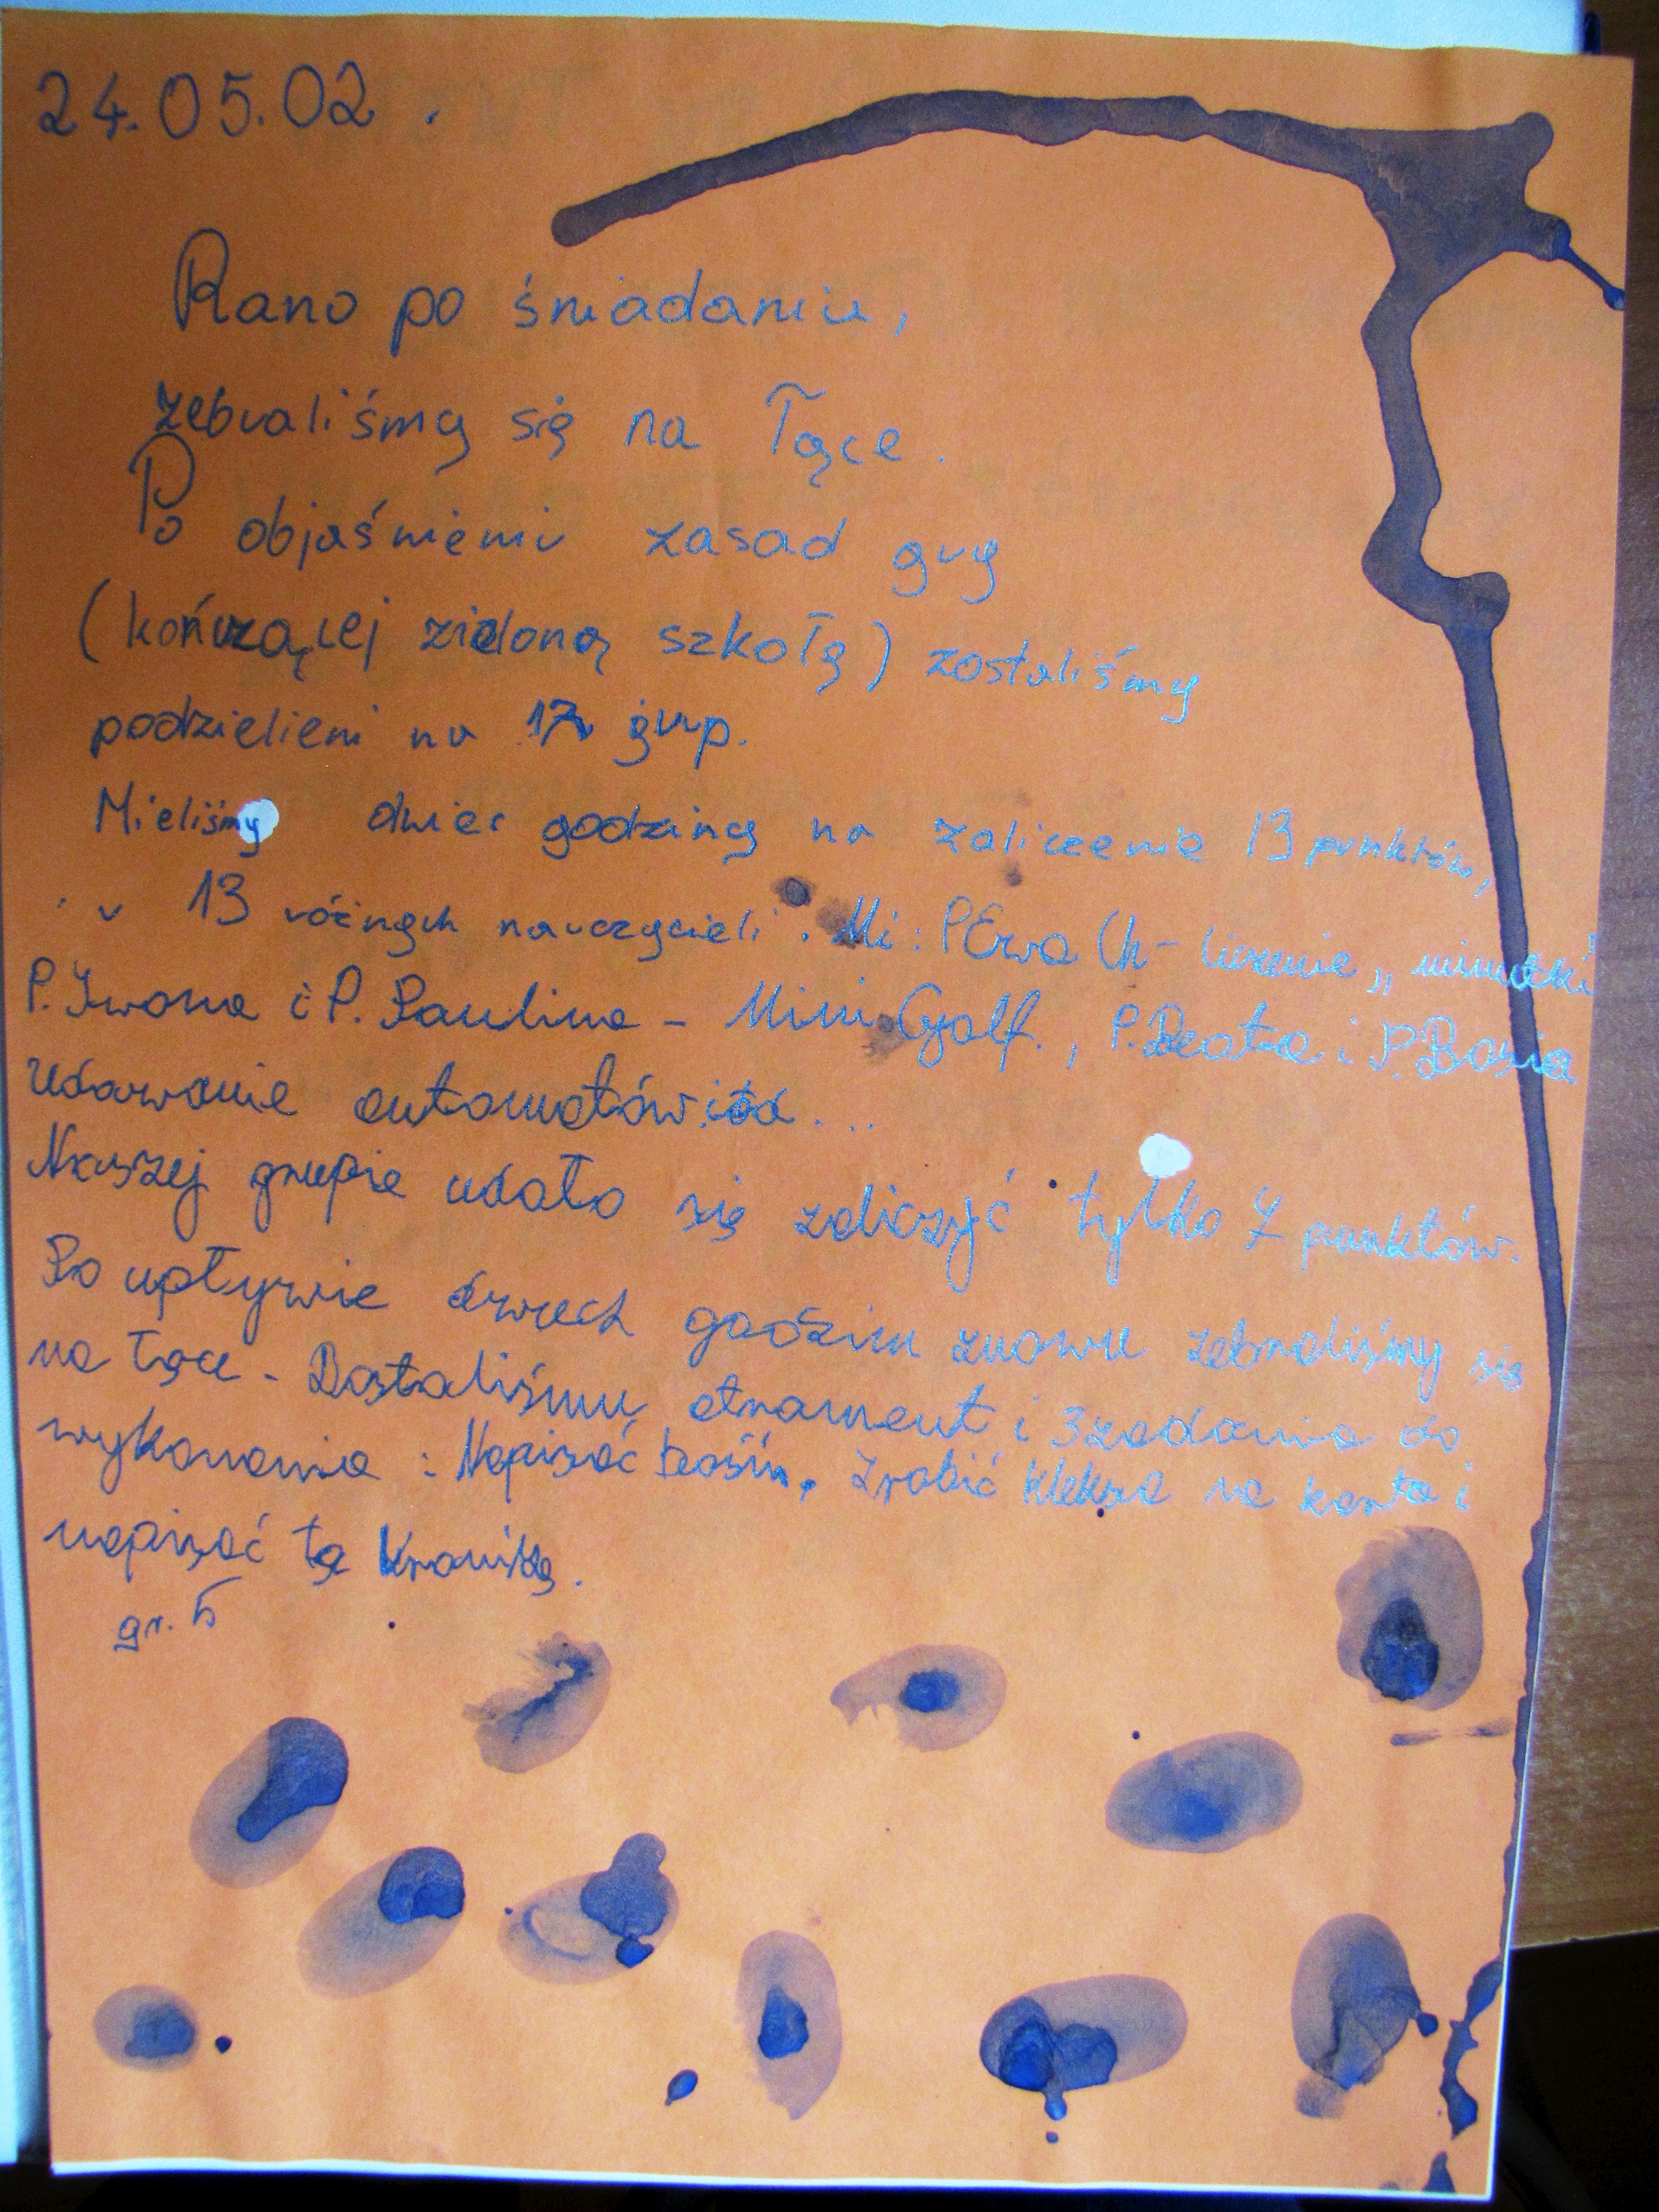 24.05.02.
Rano po śniadaniu,
zebraliśmy się na Łące.
Po objaśnieniu zasad gry
(kończącej zieloną szkołę) zostaliśmy
podzielieni na 17 grup.
Mieliśmy dwie godziny na zaliczenie 13 punktów,
u 13 różnych nauczycieli. Mi: P Ewa Ch- liczenie „
P. Iwona i P. Paulina - Mini Golf., P. Beata i P. Basia
udawanie automatów itd...
Naszej grupie udało się zaliczyć tylko 7 punktów.
Po upływie dwuch godzin znowu zebraliśmy się
na Łące. Dostaliśmy atrament i 3 zadania do
wykonania: Napisać baśń, Zrobić kleksa na karta i
napisać tę Kronikę.
gr. 5